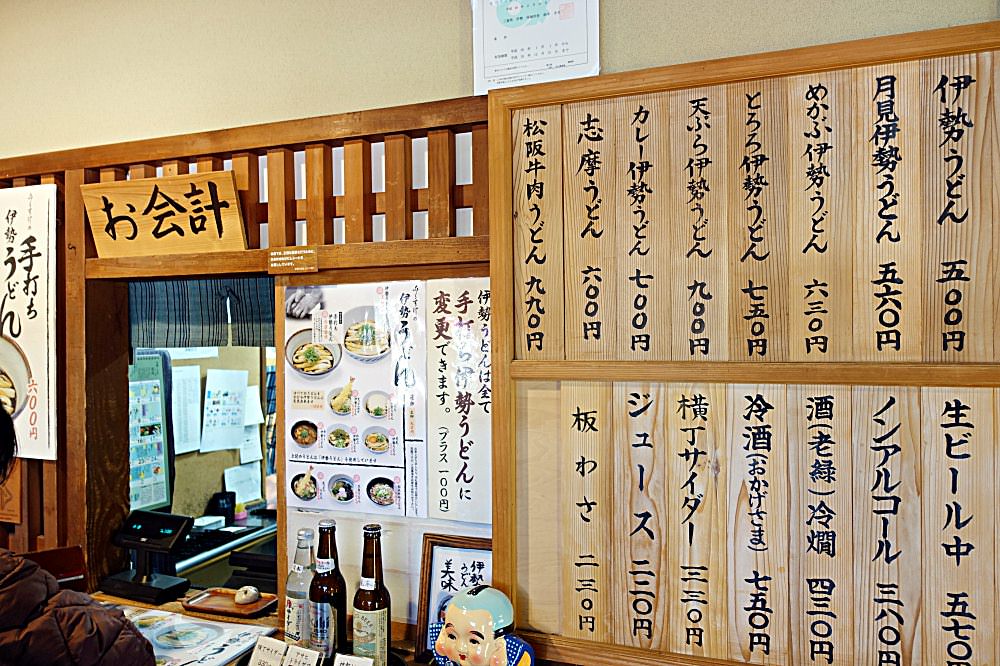 伊勢うどん 五〇〇円
月見伊勢うどん 五六〇円
めかぶ伊勢うどん 六三〇円
とろろ伊勢うどん 七五〇円
天ぷら伊勢うどん 九〇〇円
カレー伊勢うどん 七〇〇円
志摩うどん 六〇〇円
松阪牛肉うどん 九九〇円
生ビール中 五七〇円
ノンアルコール 三八〇円
酒(老緑)冷燗 四三〇円
冷酒(おかげさま) 七五〇円
横丁サイダー 三三〇円
ジュース 二二〇円
板わさ 二三〇円
伊勢うどんは全て
手打ち伊勢うどんに
変更できます。
(プラス一〇〇円)
伊勢うどん
お会計
手打ち
伊勢うどん
六〇〇円
伊勢
うどん
美味